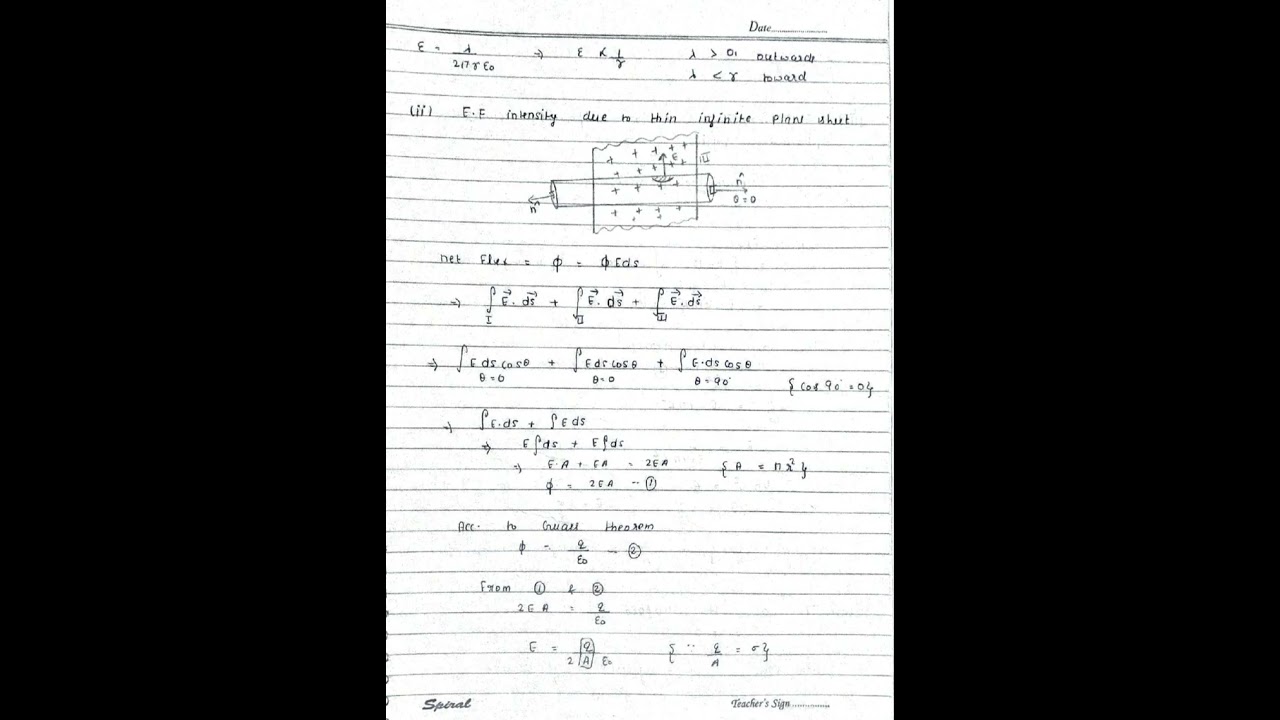 Date..............
E = λ / 2πrε0 ⇒ E ∝ 1/r λ > 0, outwards
λ < r toward
(ii) E.F intensity due to thin infinite plane sheet
E III
n̂ n̂
θ = 0
net flux = ϕ = ∮Eds
⇒ ∫I E⃗. ds⃗ + ∫II E⃗. ds⃗ + ∫III E⃗. ds⃗
⇒ ∫E ds cosθ + ∫E ds cosθ + ∫E.ds cosθ
θ = 0 θ = 0 θ = 90° { cos 90° = 0}
⇒ ∫E.ds + ∫E ds
⇒ E∫ds + E∫ds
⇒ E.A + EA = 2EA { A = πr² }
ϕ = 2EA -- ①
Acc. to Guass theorem
ϕ = q/ε0 -- ②
From ① & ②
2EA = q/ε0
E = q / 2 A ε0 { ∵ q/A = σ}
Spiral Teacher's Sign..............